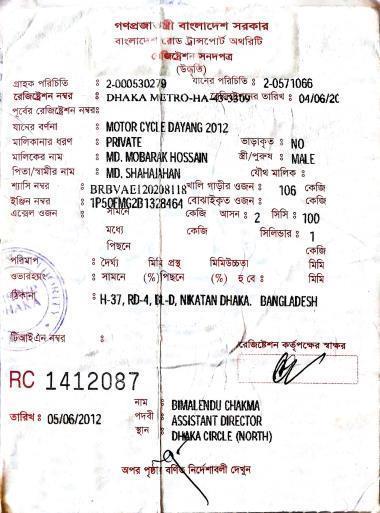 গণপ্রজাতন্ত্রী বাংলাদেশ সরকার
বাংলাদেশ রোড ট্রান্সপোর্ট অথরিটি
রেজিষ্ট্রেশন সনদপত্র
(উদ্ধৃতি)
গ্রাহক পরিচিতি : 2-000530279 যানের পরিচিতি : 2-0571066
রেজিষ্ট্রেশন নম্বর : DHAKA METRO-HA-43-5309 রেজিষ্ট্রেশনের তারিখ : 04/06/20
পূর্বের রেজিষ্ট্রেশন নম্বরঃ
যানের বর্ণনা : MOTOR CYCLE DAYANG 2012
মালিকানার ধরণ : PRIVATE ভাড়াকৃত : NO
মালিকের নাম : MD. MOBARAK HOSSAIN স্ত্রী/পুরুষ : MALE
পিতা/স্বামীর নাম : MD. SHAHAJAHAN যৌথ মালিক :
শ্যাসি নম্বর : BRBVAE120208118 খালি গাড়ীর ওজন : 106 কেজি
ইঞ্জিন নম্বর : 1P50FMG2B1328464 বোঝাইকৃত ওজন : কেজি
এক্সেল ওজন : সামনে কেজি আসন : 2 সিসি : 100
মধ্যে কেজি সিলিন্ডার : 1
পিছনে কেজি
পরিমাপ : দৈর্ঘ্য মিমি প্রস্থ মিমিউচ্চতা মিমি
ওভারহ্যাং : সামনে (%) পিছনে (%) হু বে : মিমি
ঠিকানা : H-37, RD-4, BL-D, NIKATAN DHAKA. BANGLADESH
টিআইএন নম্বর :
রেজিষ্ট্রেশন কর্তৃপক্ষের স্বাক্ষর
RC 1412087
নাম : BIMALENDU CHAKMA
তারিখ : 05/06/2012 পদবী : ASSISTANT DIRECTOR
স্থান : DHAKA CIRCLE (NORTH)
অপর পৃষ্ঠায় বর্ণিত নির্দেশাবলী দেখুন